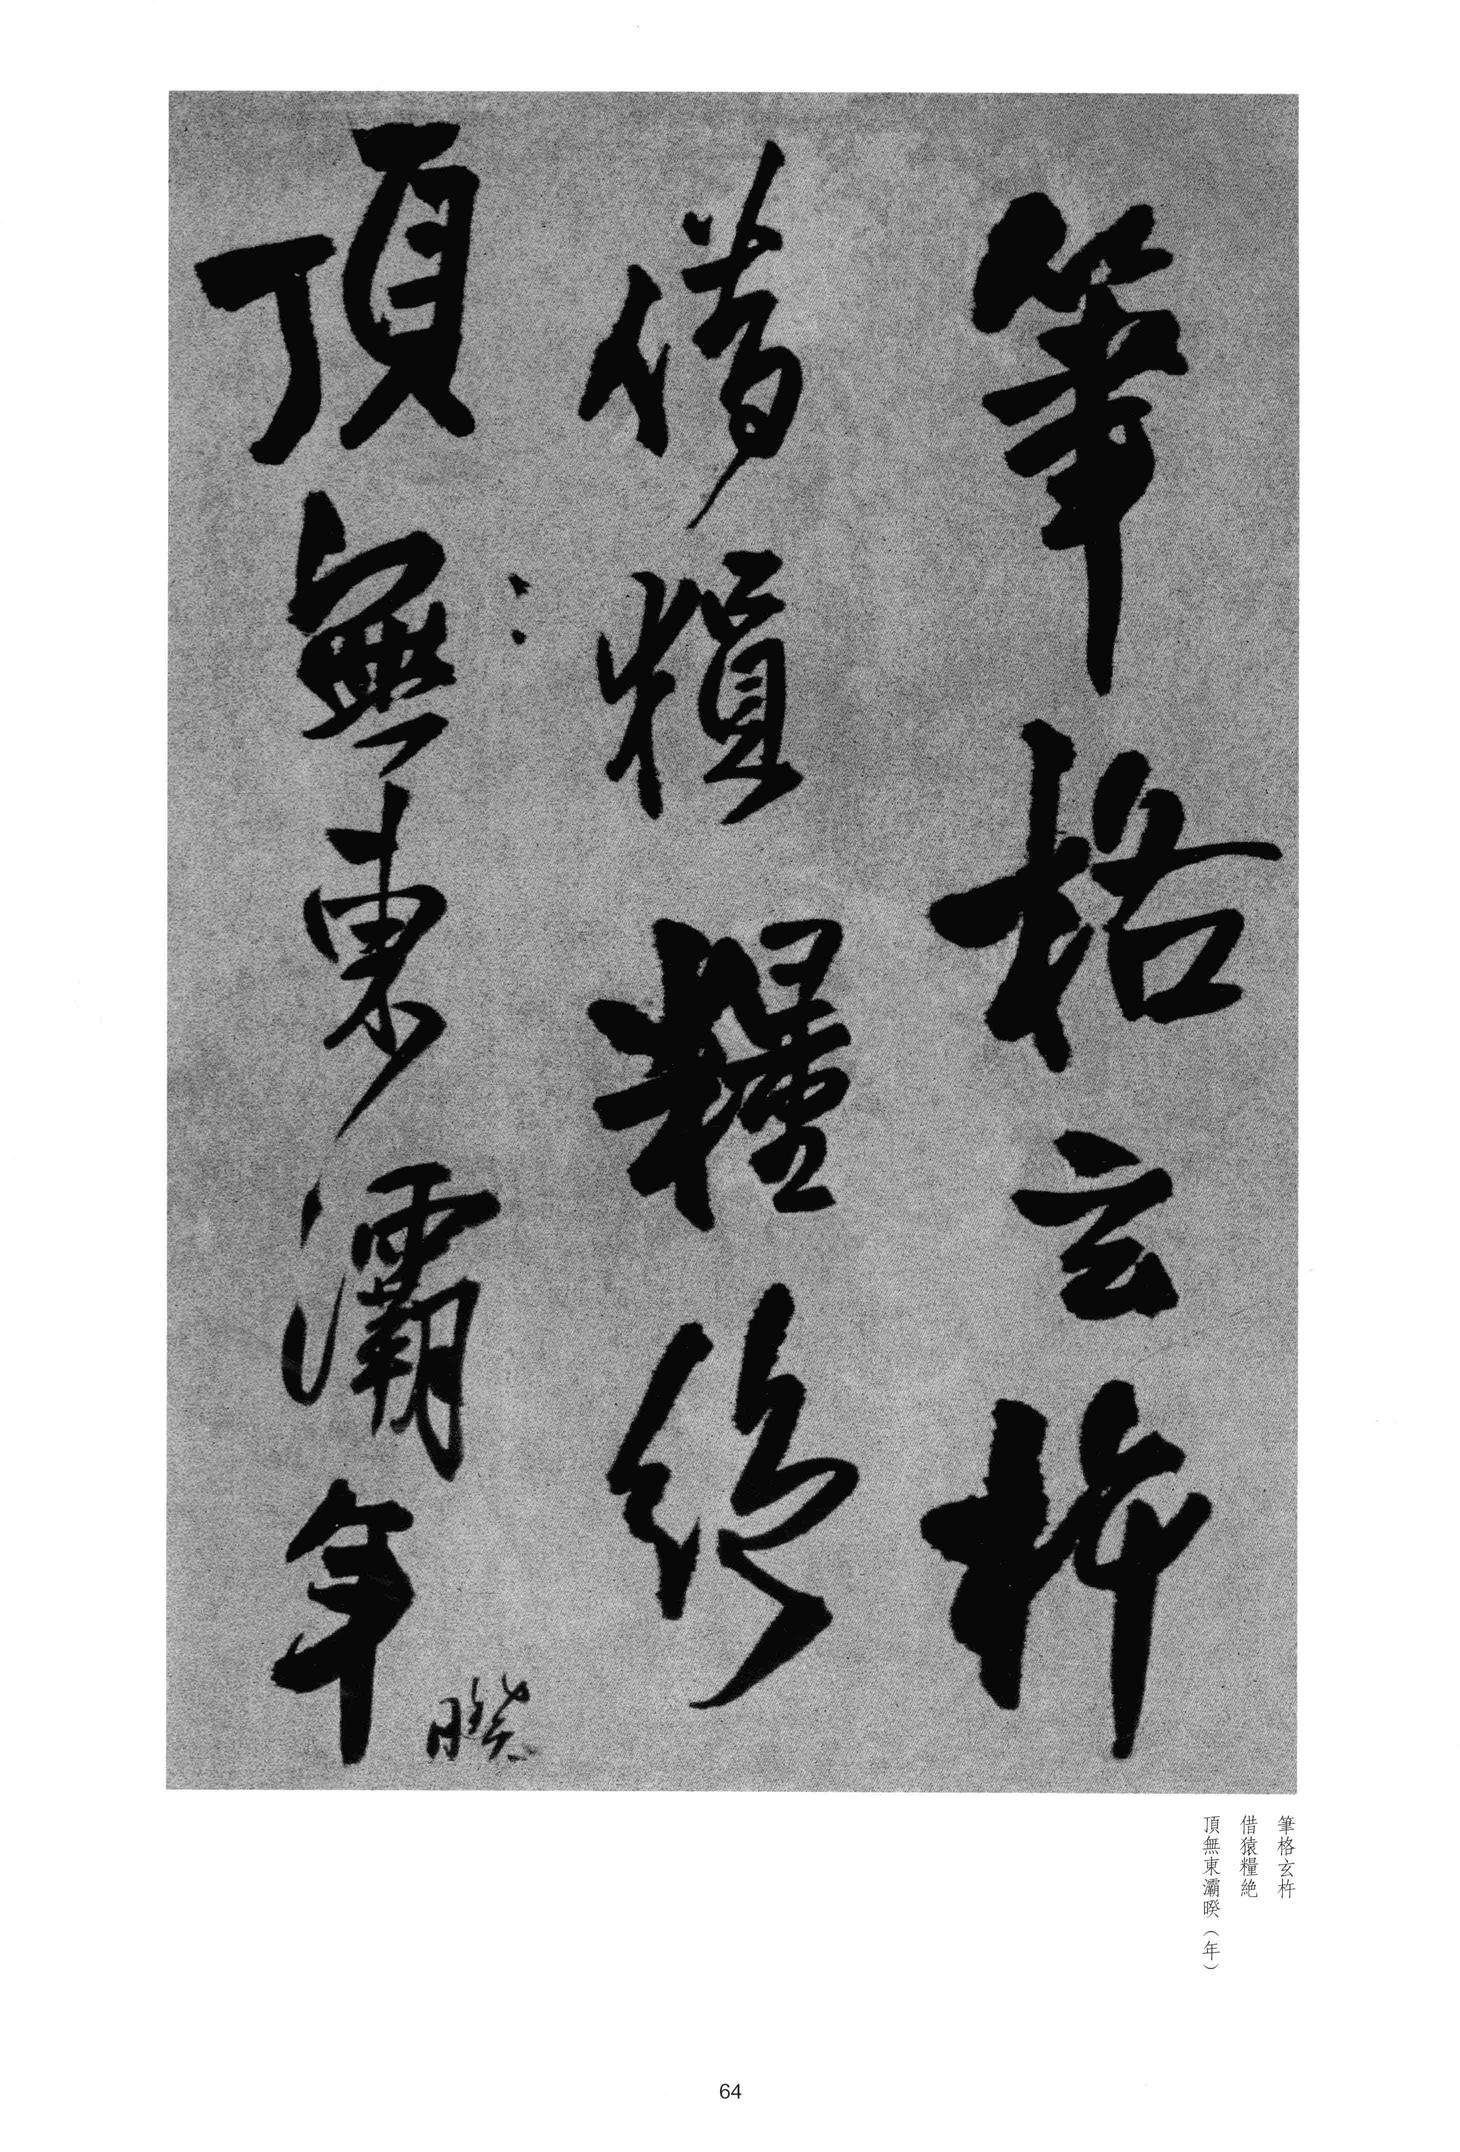 筆格玄杵
借猿糧絶
頂無東灞年
暌
筆格玄杵
借猿糧絶
頂無東灞暌（年）
64